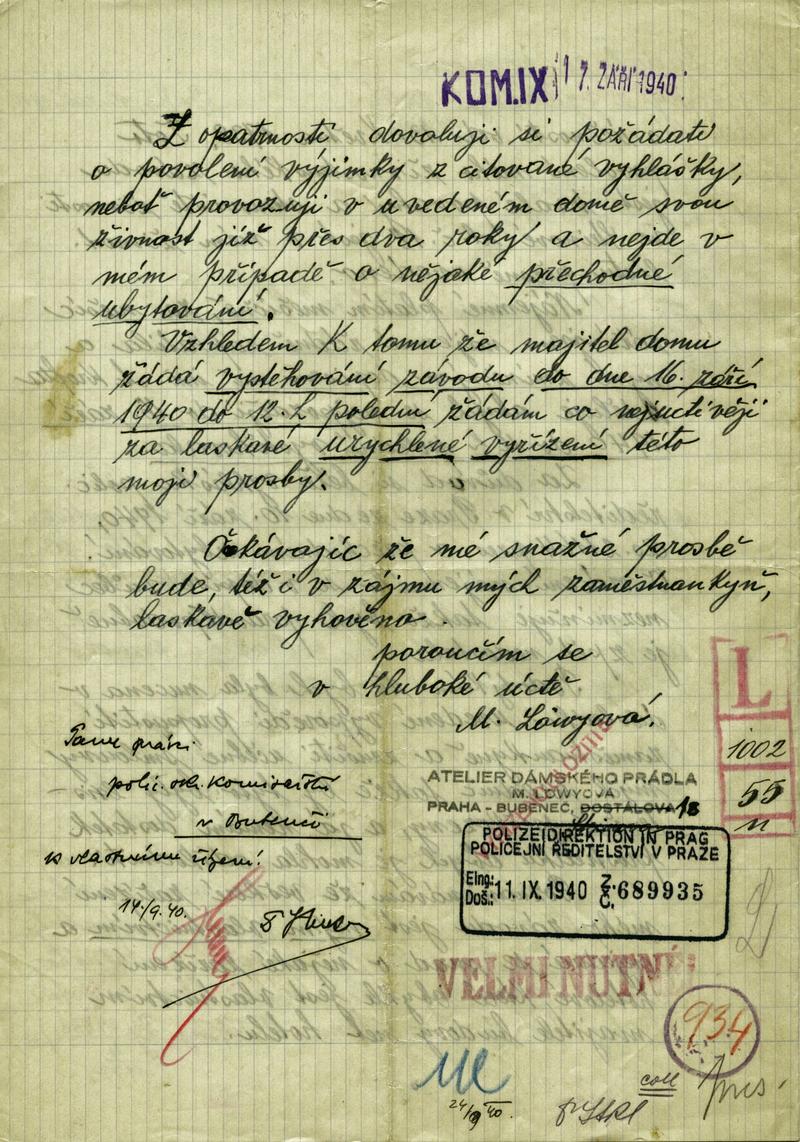 KOM.IX 17. ZÁŘÍ 1940
Z opatrnosti dovoluji si požádati
o povolení výjimky z citované vyhlášky,
neboť provozuji v uvedeném domě svou
živnost již přes dva roky a nejde v
mém případě o nějaké přechodné
ubytování.
Vzhledem K tomu že majitel domu
žádá vystěhování závodu do dne 16. září
1940 do 12. h poledni žádám co nejuctivěji
za laskavé urychlené vyřízení této
moji prosby.
Očekávajíc že mé snažné prosbě
bude, též i v zájmu mých zaměstnankyň,
laskavě vyhověno.
poroučím se
v hluboké úctě
M. Löwyová.
L
1002
55
11
Panu
polic. okr. komisařství
v Bubenči
k vlastnímu řízení!
14./9.40.
ATELIER DÁMSKÉHO PRÁDLA
M. LÖWYOVÁ
PRAHA - BUBENEČ, DOSTÁLOVA 18
POLIZEIDIREKTION IN PRAG
POLICEJNÍ ŘEDITELSTVÍ V PRAZE
Elng.: Doš.: 11. IX. 1940 Z. Č. 689935
VELMI NUTNÉ!
934
24/9 40.
coll